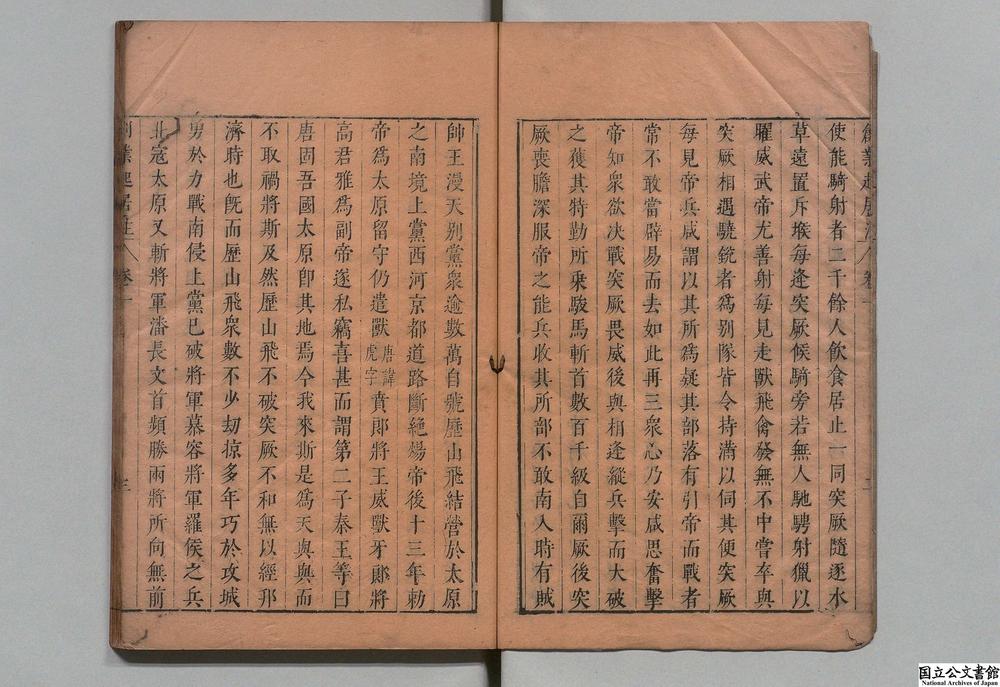 使能騎射者二千餘人飲食居止一同突厥隨逐水
草遠置斥堠每逢突厥候騎旁若無人馳騁射獵以
曜威武帝尤善射每見走獸飛禽發無不中嘗卒與
突厥相遇驍銳者為別隊皆令持滿以伺其便突厥
每見帝兵咸謂以其所為疑其部落有引帝而戰者
常不敢當辟易而去如此再三衆心乃安咸思奮擊
帝知衆欲決戰突厥畏威後與相逢縱兵擊而大破
之獲其特勤所乘駿馬斬首數百千級自爾厥後突
厥喪膽深服帝之能兵收其所部不敢南入時有賊
帥王漫天別黨衆逾數萬自號歷山飛結營於太原
之南境上黨西河京都道路斷絕煬帝後十三年勑
帝為太原留守仍遣獸唐諱虎字賁郎將王威獸牙郎將
高君雅為副帝遂私竊喜甚而謂第二子秦王等曰
唐固吾國太原即其地焉今我來斯是為天與與而
不取禍將斯及然歷山飛不破突厥不和無以經邦
濟時也旣而歷山飛衆數不少刼掠多年巧於攻城
勇於力戰南侵上黨已破將軍慕容將軍羅侯之兵
北寇太原又斬將軍潘長文首頻勝兩將所向無前
創業起居注 卷一
三
国立公文書館
National Archives of Japan